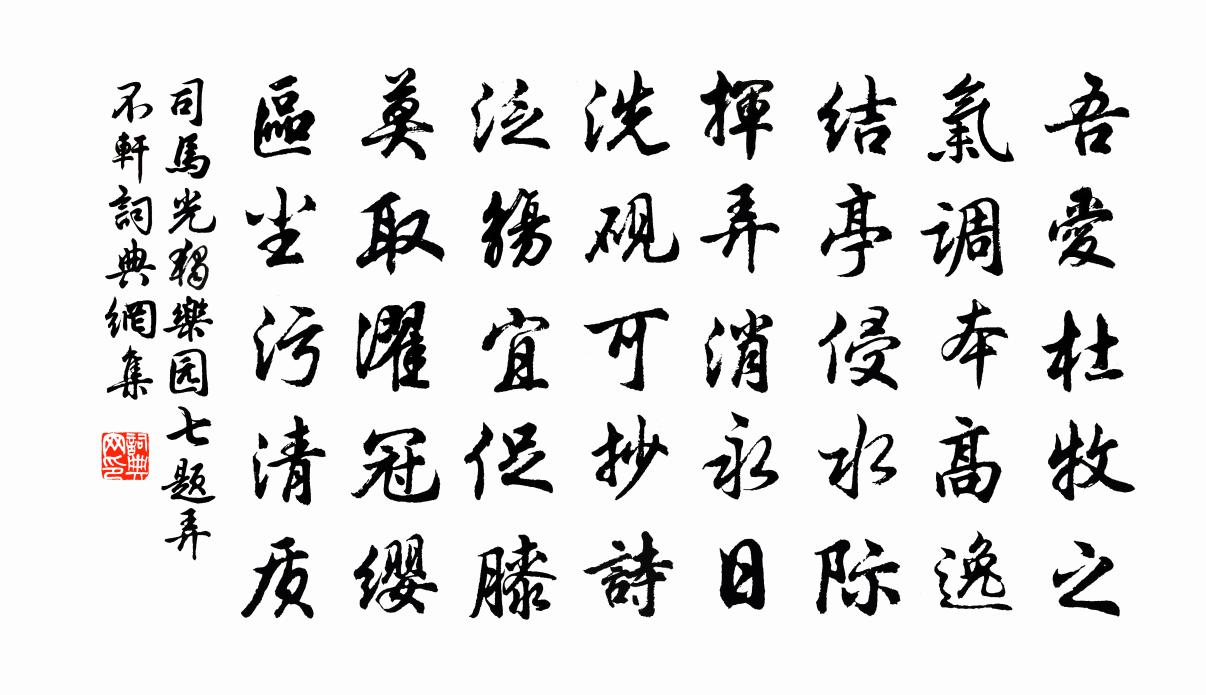 吾愛杜牧之
氣調本高逸
结亭侵水际
揮弄消永日
洗砚可抄詩
泛觴宜促膝
莫取濯冠缨
區尘污清质
司馬光獨樂园七题弄
水軒詞典網集
詞典网印